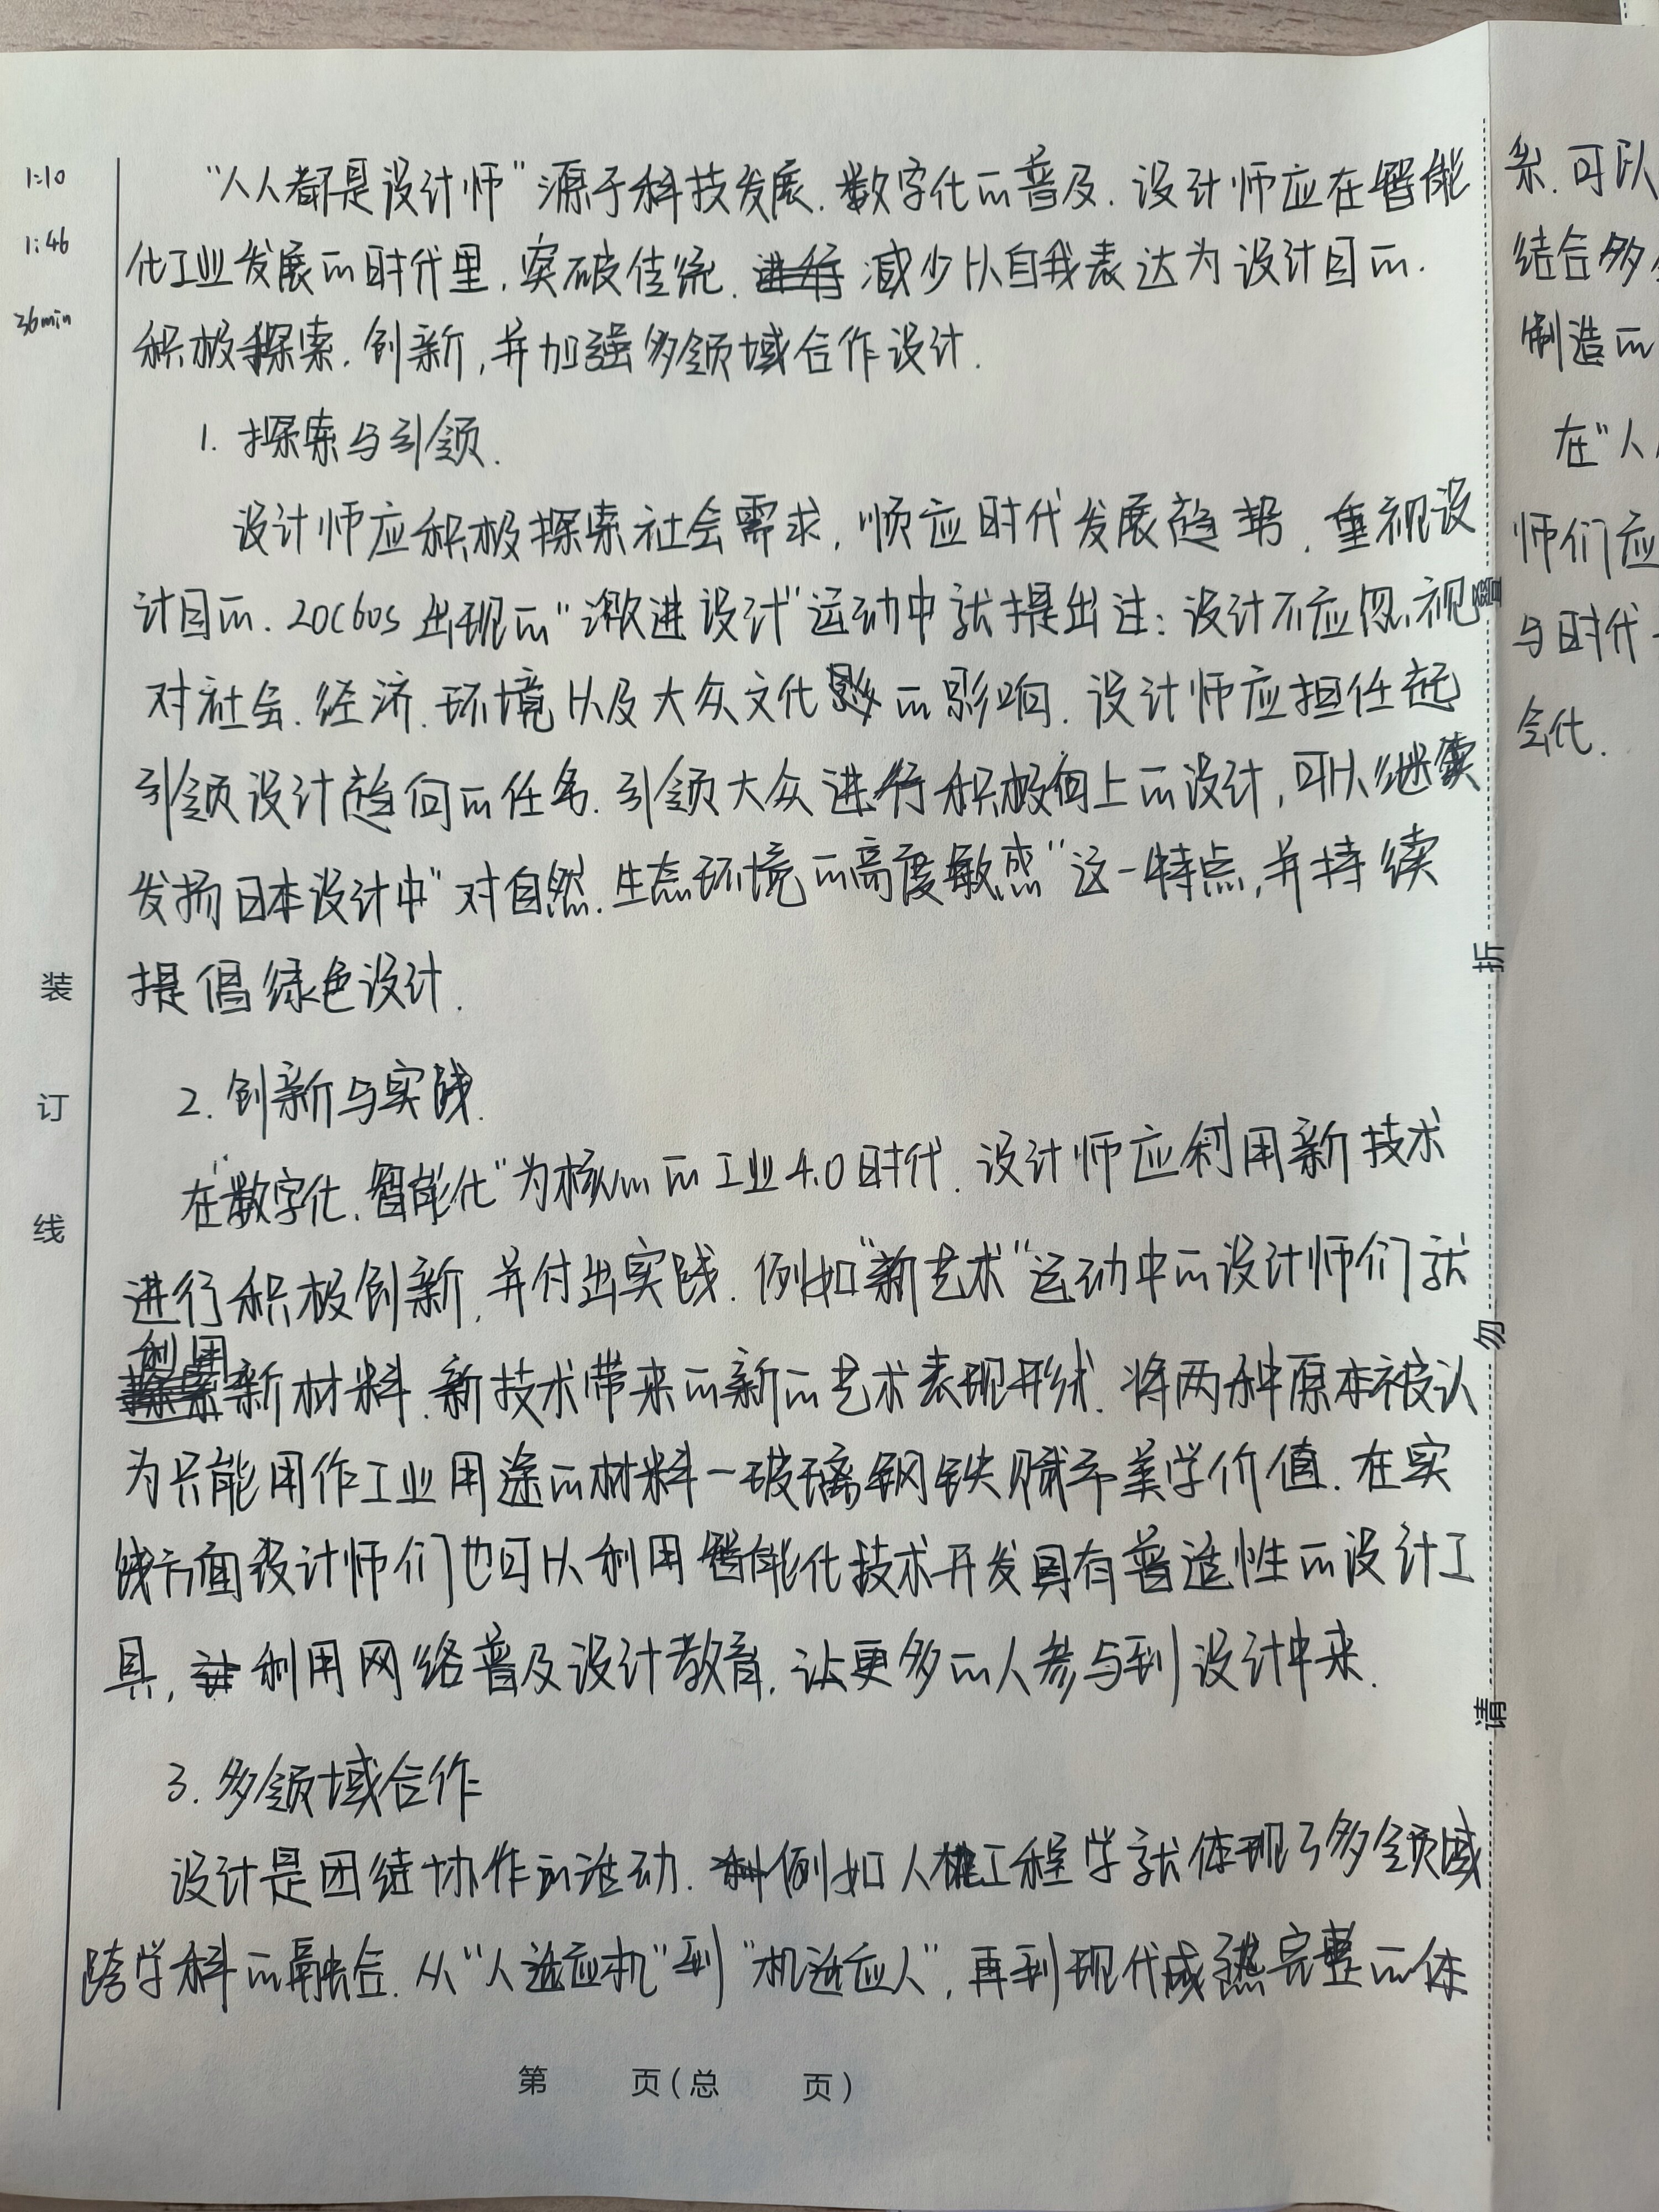 1:10
1:46
36min
"人人都是设计师"源于科技发展、数字化的普及.设计师应在智能
化工业发展的时代里,突破传统、减少以自我表达为设计目的.
积极探索、创新,并加强多领域合作设计.
1. 探索与引领.
设计师应积极探索社会需求,顺应时代发展趋势,重视设
计目的.20C60s出现的"激进设计"运动中就提出过:设计不应忽视
对社会、经济、环境以及大众文化的影响.设计师应担任起
引领设计趋向的任务.引领大众进行积极向上的设计,可以继续
发扬日本设计中"对自然、生态环境的高度敏感"这一特点,并持续
提倡绿色设计.
2. 创新与实践.
在"数字化、智能化"为核心的工业4.0时代.设计师应利用新技术
进行积极创新,并付出实践.例如"新艺术"运动中的设计师们就
利用新材料、新技术带来的新的艺术表现形式.将两种原本被认
为只能用作工业用途的材料—玻璃钢铁赋予美学价值.在实
践方面设计师们也可以利用智能化技术开发具有普适性的设计工
具,利用网络普及设计教育,让更多的人参与到设计中来.
3. 多领域合作
设计是团结协作的活动.例如人机工程学就体现了多领域
跨学科的融合.从"人适应机"到"机适应人",再到现代成熟完整的体
第 页(总 页)
装
订
线
折
勿
请
系.可以
结合多
制造的
在"人
师们应
与时代
会化.